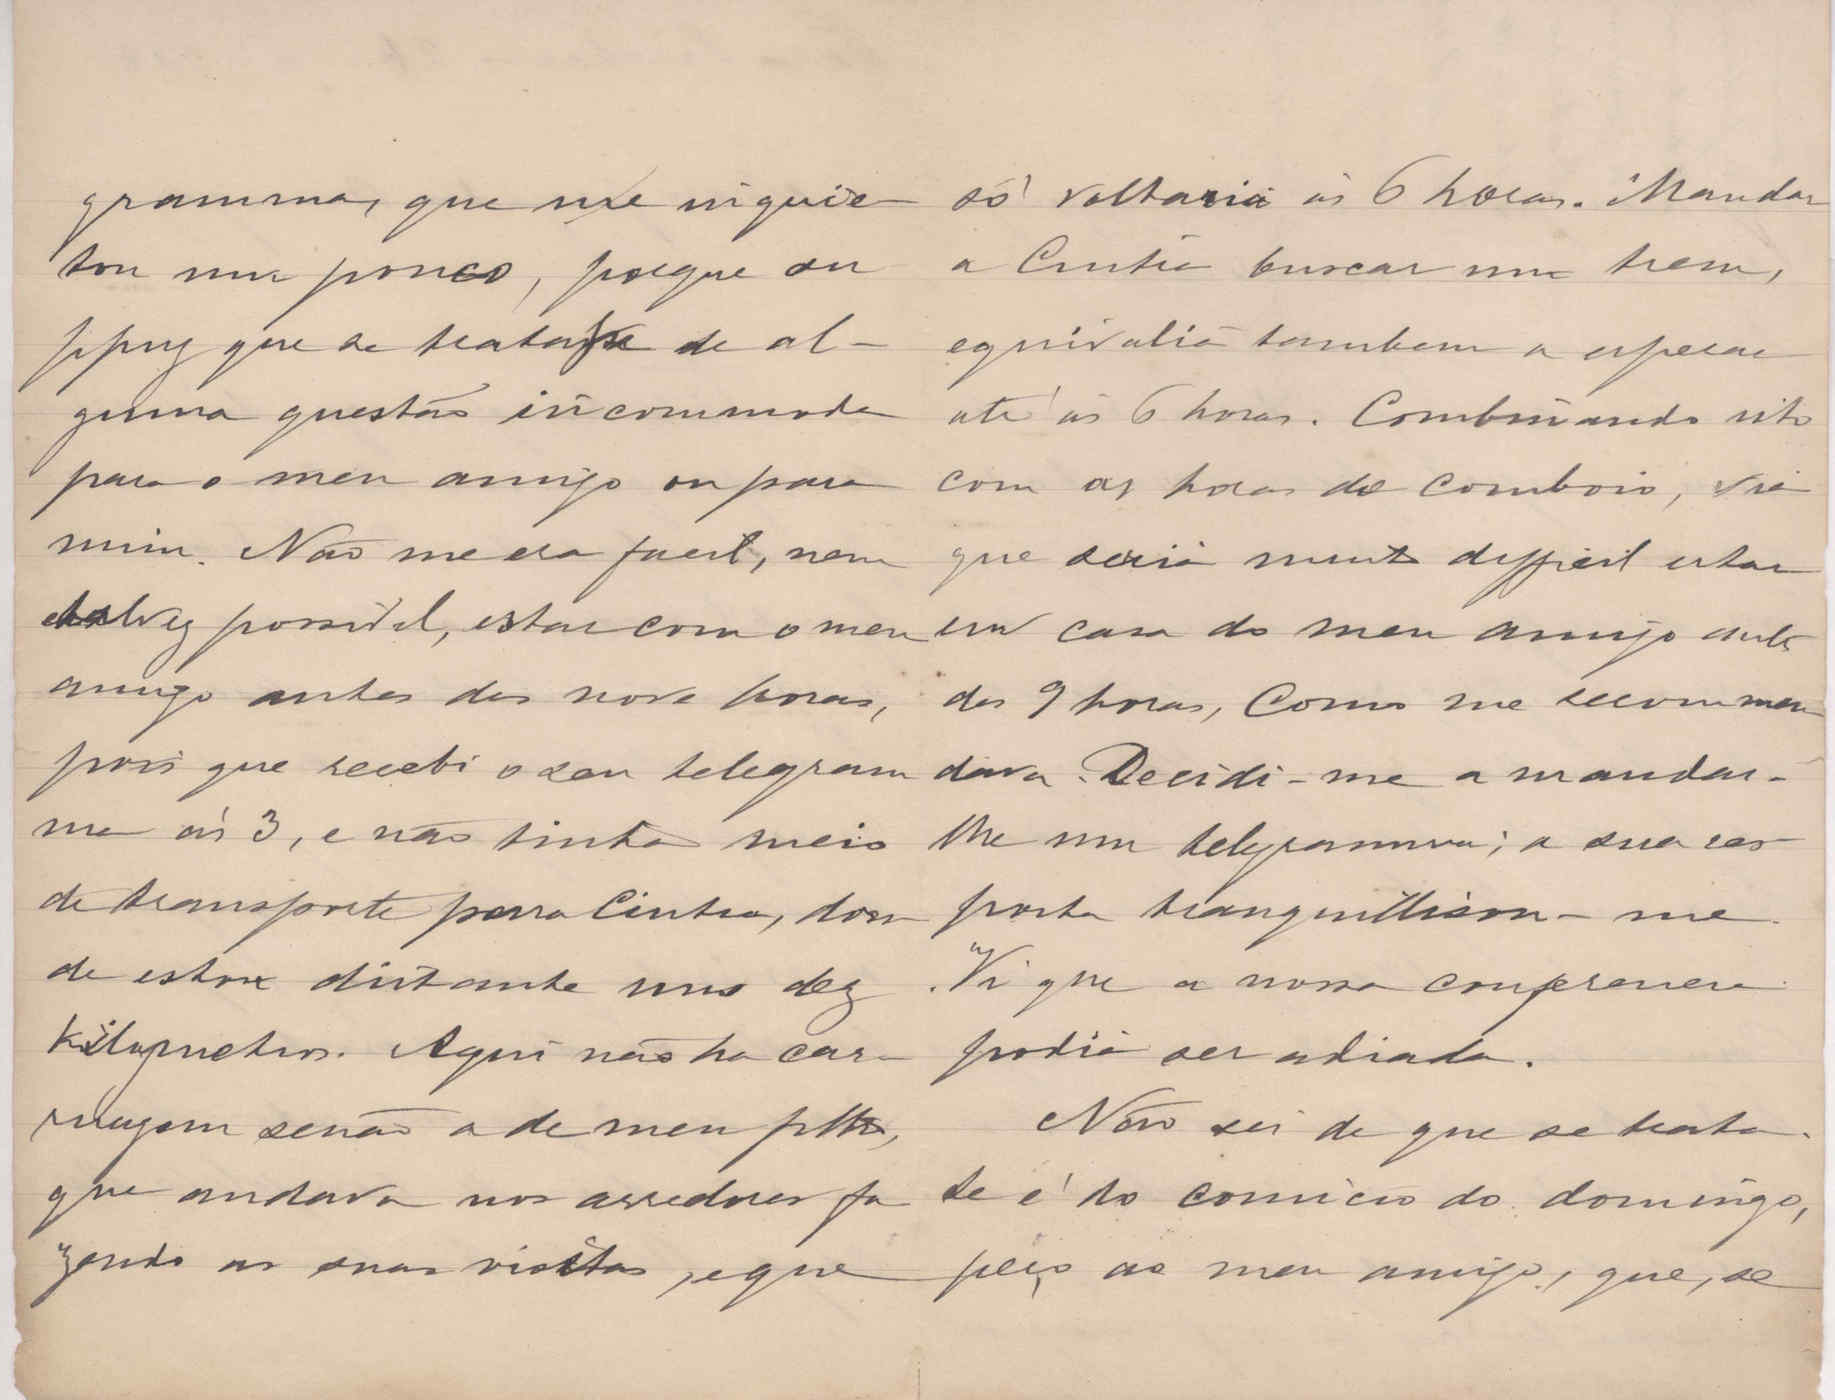 gramma, que me inquie
tou um pouco, porque su
ppuz que se tratasse de al-
guma questão incommoda
para o meu amigo ou para
mim. Não me era facil, nem
talvez possivel, estar com o meu
amigo antes das nove horas,
pois que recebi o seu telegram
ma ás 3, e não tinha meio
de transporte para Cintra, don
de estou distante uns dez
kilometros. Aqui não ha car-
ruagem senão a de meu filho,
que andava nos arredores fa
zendo as suas visitas, e que
só voltaria ás 6 horas. Mandar
a Cintra buscar um trem,
equivalia tambem a esperar
até ás 6 horas. Combinando isto
com as horas do comboio, via
que seria muito difficil estar
em casa do meu amigo antes
das 9 horas, como me recommen
dava. Decidi-me a mandar-
lhe um telegramma; a sua res
posta tranquillisou-me.
Vi que a nossa conferencia
podia ser adiada.
Não sei de que se trata.
Se é do comicio do domingo,
peço ao meu amigo, que, se